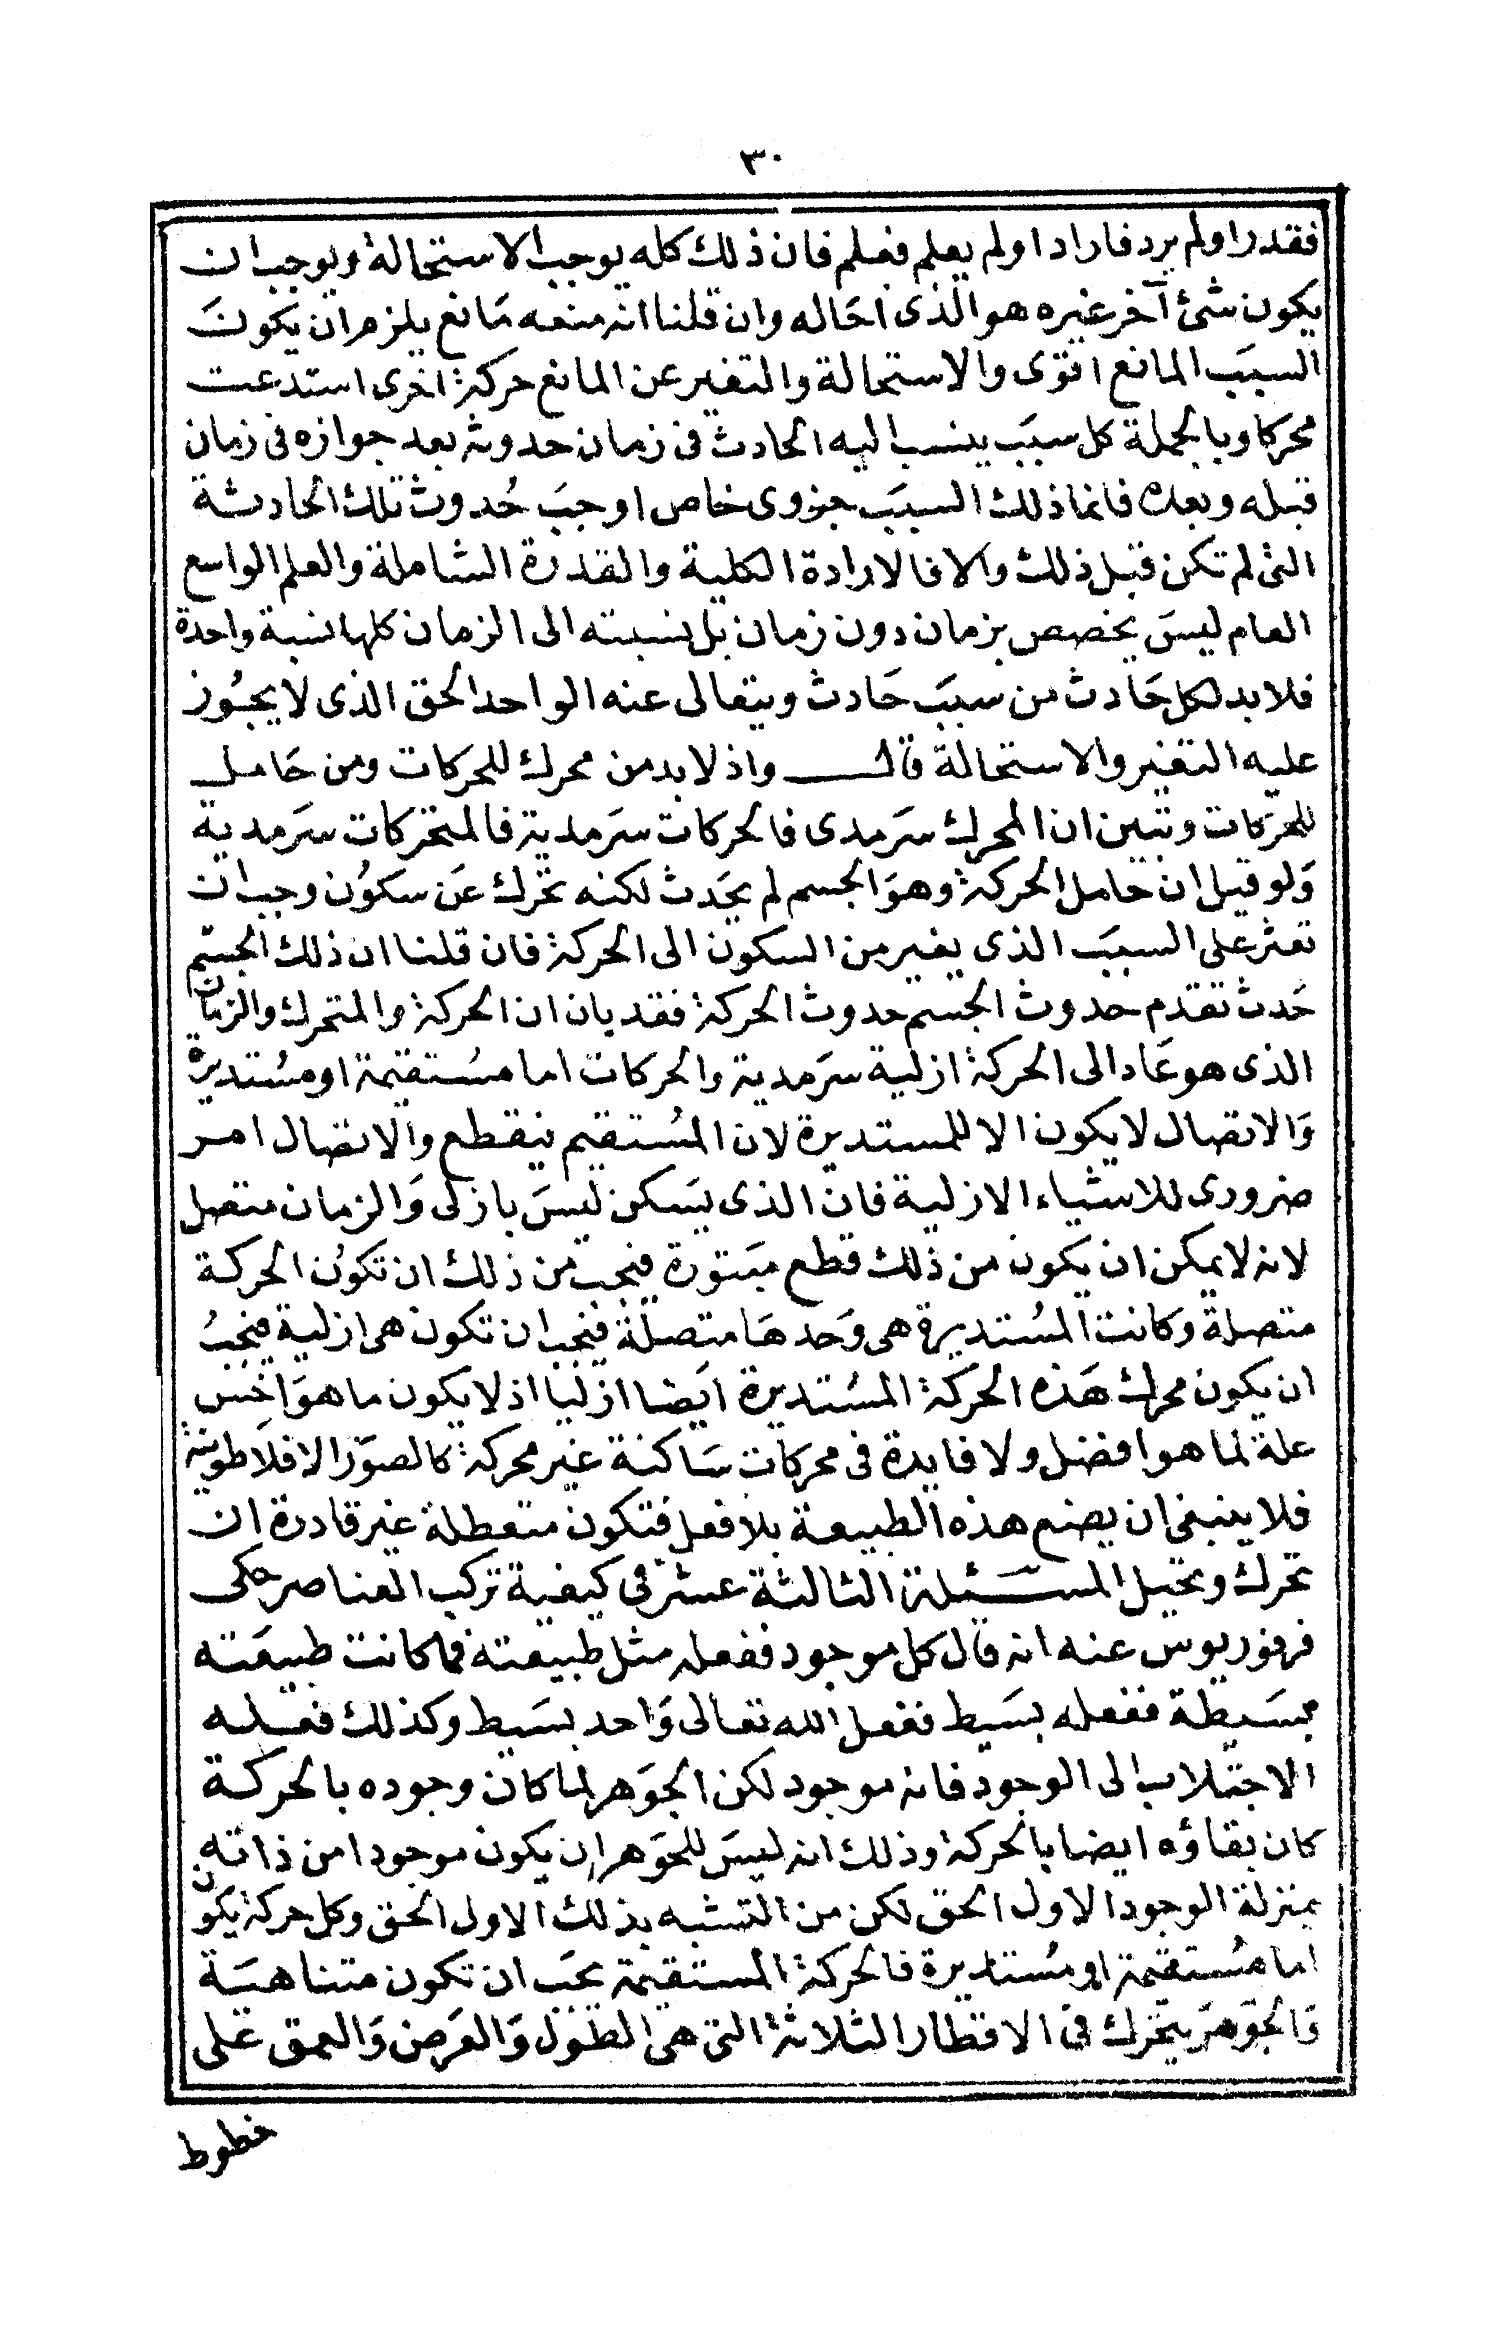 ٣٠
فقدر او لم يرد فاراد او لم يعلم فعلم فان ذلك كله يوجب الاستحالة ويوجب ان
يكون شئ آخر غيره هو الذى احاله وان قلنا انه منعه مانع يلزم ان يكون
السبب المانع اقوى والاستحالة والتغير عن المانع حركة اخرى استدعت
محركا وبالجملة كل سبب ينسب اليه الحادث فى زمان حدوثه بعد جوازه فى زمان
قبله وبعده فانما ذلك السبب جزوى خاص اوجب حُدوث تلك الحادثة
التى لم تكن قبل ذلك والا فالارادة الكلية والقدرة الشاملة والعلم الواسع
العام ليس يخصص بزمان دون زمان بل نسبته الى الزمان كلها نسبة واحدة
فلا بد لكل حَادث من سبب حَادث ويتعالى عنه الواحد الحق الذى لا يجُوز
عليه التغير والاستحالة قال واذ لا بد من محرك للحركات ومن حَامل
للحركات وتبين ان المحرك سرمدى فالحركات سرمدية فالمتحركات سرمدية
وَلو قيل ان حامل الحركة وهوَ الجسم لم يحَدث لكنه تحرك عَن سكوُن وجب ان
نعثر على السبب الذى يغير من السكون الى الحركة فان قلنا ان ذلك الجسم
حَدث تقدم حدوث الجسم حدوث الحركة فقد بان ان الحركة والمتحرك والزمان
الذى هو عَاد الى الحركة ازلية سرَمدية والحركات اما مسُتقيمة او مسُتديرة
وَالاتصال لا يكون الا للمستديرة لان المُستقيم ينقطع والاتصال امر
ضرورى للاشياء الازلية فان الذى يسَكن ليسَ بازلى وَالزمان متصل
لانه لا يمكن ان يكون من ذلك قطع مبَتورة فيجب من ذلك ان تكوُن الحركة
متصلة وكانت المسُتديرة هى وَحدهَا متصلة فيجب ان تكون هى ازلية فيجبُ
ان يكون محرك هَذه الحركة المسُتديرة ايَضا ازليا اذ لا يكون ما هوَ اخس
علة لما هو افضل ولا فايدة فى محركات سَاكنة غير محركة كالصوَر الافلاطونية
فلا ينبغى ان يصنع هذه الطبيعة بلا فعل فتكون متعطلة غير قادرة ان
تحرك وتحيل المسئلة الثالثة عشر فى كيفية تركب العناصر حكى
فرفوريوس عنه انه قال كل موجود ففعله مثل طبيعته فما كانت طبيعَته
بسَيطة ففعله بسَيط ففعل الله تعالى وَاحد بسَيط وكذلك فعله
الاجتلاب الى الوجود فانه موجود لكن الجوَهر لما كان وجوده بالحركة
كان بقاؤه ايضا بالحركة وذلك انه ليسَ للجوَهر ان يكون موجودا من ذاته
بمنزلة الوجود الاول الحق لكن من التشبه بذلك الاول الحق وكل حركة يكون
اما مسُتقيمة او مسُتديرة فالحركة المستقيمة يجَب ان تكون متناهيَة
فَالجوَهرَ يتحرك فى الاقطار الثلاثة التى هى الطول وَالعرَض وَالعمق على
خطوط